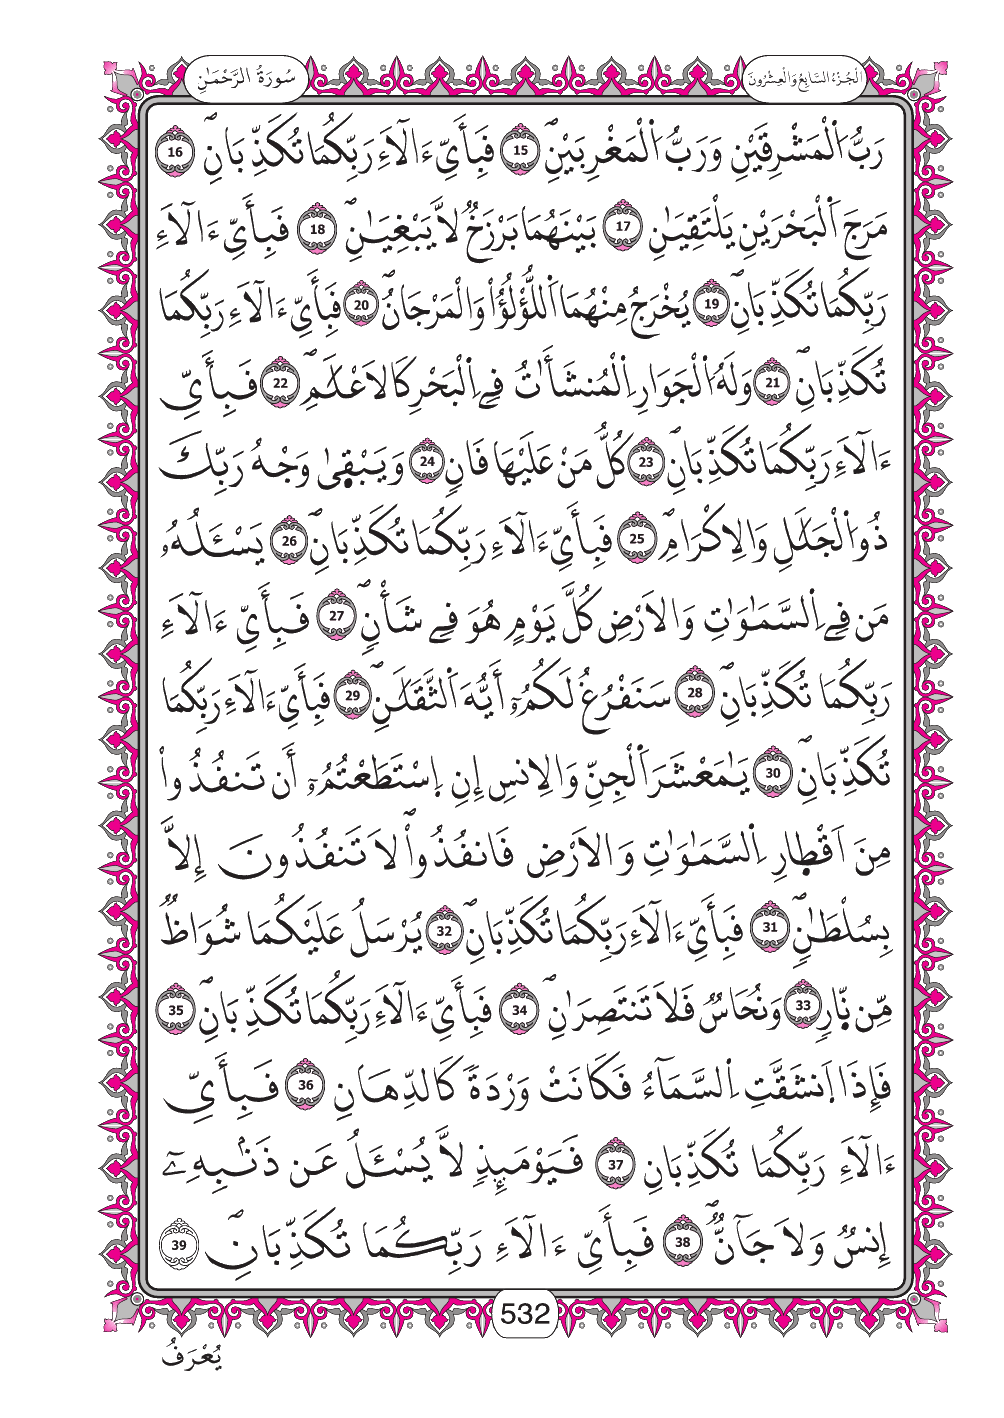 الْجُزْءُ السَّابِعُ وَالْعِشْرُونَ
سُورَةُ الرَّحْمَٰنِ
رَبُّ اُ۬لْمَشْرِقَيْنِ وَرَبُّ اُ۬لْمَغْرِبَيْنِۖ 15 فَبِأَيِّ ءَالَآءِ رَبِّكُمَا تُكَذِّبَانِۖ 16
مَرَجَ اَ۬لْبَحْرَيْنِ يَلْتَقِيَٰنِ 17 بَيْنَهُمَا بَرْزَخٞ لَّا يَبْغِيَٰنِۖ 18 فَبِأَيِّ ءَالَآءِ
رَبِّكُمَا تُكَذِّبَانِۖ 19 يُخْرَجُ مِنْهُمَا اَ۬للُّؤْلُؤُاْ وَالْمَرْجَانُۖ 20 فَبِأَيِّ ءَالَآءِ رَبِّكُمَا
تُكَذِّبَانِۖ 21 وَلَهُ اُ۬لْجَوَارِ اِ۬لْمُنشَـَٔاتُ فِے اِ۬لْبَحْرِ كَالَاعْلَٰمِۖ 22 فَبِأَيِّ
ءَالَآءِ رَبِّكُمَا تُكَذِّبَانِۖ 23 كُلُّ مَنْ عَلَيْهَا فَانٖ 24 وَيَبْق۪يٰ وَجْهُ رَبِّكَ
ذُو اُ۬لْجَلَٰلِ وَالِاكْرَامِۖ 25 فَبِأَيِّ ءَالَآءِ رَبِّكُمَا تُكَذِّبَانِۖ 26 يَسْـَٔلُهُۥ
مَن فِے اِ۬لسَّمَٰوَٰتِ وَالَارْضِ كُلَّ يَوْمٍ هُوَ فِے شَأْنٖۖ 27 فَبِأَيِّ ءَالَآءِ
رَبِّكُمَا تُكَذِّبَانِۖ 28 سَنَفْرُغُ لَكُمُۥٓ أَيُّهَ اَ۬لثَّقَلَٰنِۖ 29 فَبِأَيِّ ءَالَآءِ رَبِّكُمَا
تُكَذِّبَانِۖ 30 يَٰمَعْشَرَ اَ۬لْجِنِّ وَالِانسِ إِنِ اِ۪سْتَطَعْتُمُۥٓ أَن تَنفُذُواْ
مِنَ اَقْط۪ارِ اِ۬لسَّمَٰوَٰتِ وَالَارْضِ فَانفُذُواْۖ لَا تَنفُذُونَ إِلَّا
بِسُلْطَٰنٖۖ 31 فَبِأَيِّ ءَالَآءِ رَبِّكُمَا تُكَذِّبَانِۖ 32 يُرْسَلُ عَلَيْكُمَا شُوَاظٞ
مِّن نّ۪ارٖ 33 وَنُحَاسٞ فَلَا تَنتَصِرَٰنِۖ 34 فَبِأَيِّ ءَالَآءِ رَبِّكُمَا تُكَذِّبَانِۖ 35
فَإِذَا اَ۪نشَقَّتِ اِ۬لسَّمَآءُ فَكَانَتْ وَرْدَةٗ كَالدِّهَانِ 36 فَبِأَيِّ
ءَالَآءِ رَبِّكُمَا تُكَذِّبَانِ 37 فَيَوْمَئِذٖ لَّا يُسْـَٔلُ عَن ذَنۢبِهِۦٓ
إِنسٞ وَلَا جَآنّٞۖ 38 فَبِأَيِّ ءَالَآءِ رَبِّكُمَا تُكَذِّبَانِۖ 39
532
يُعْرَفُ